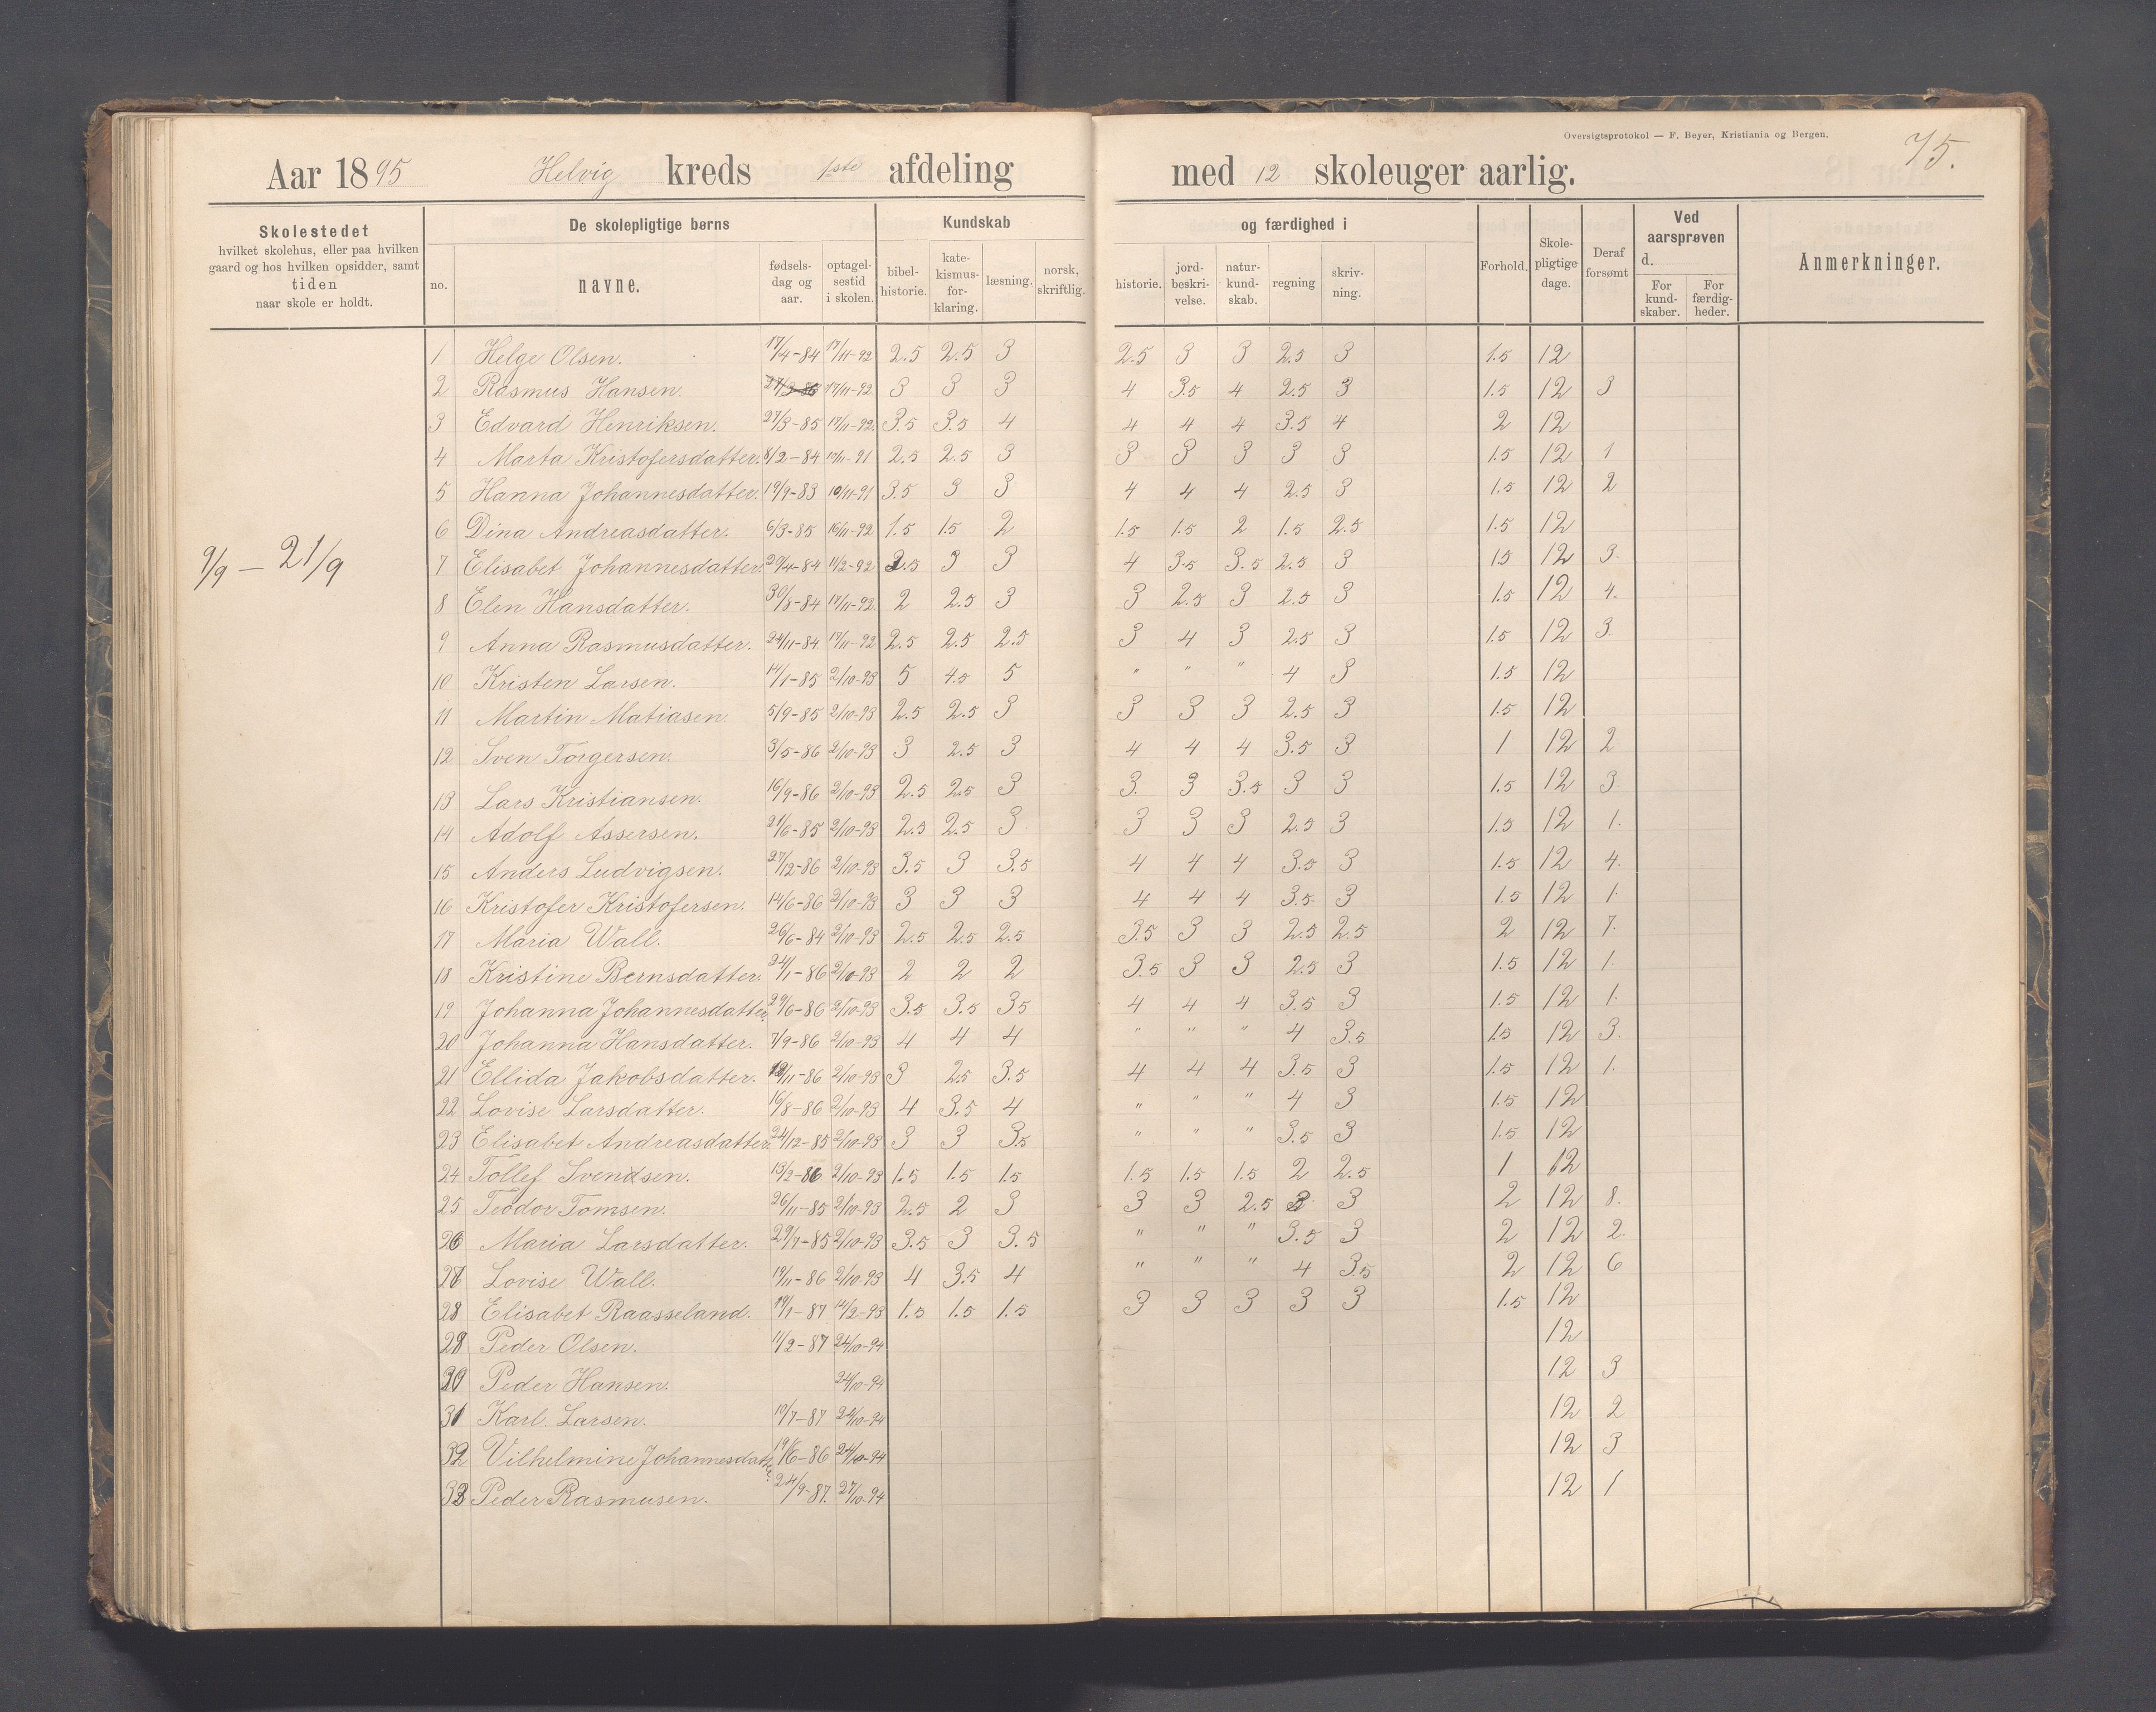 Oversigtsprotokol — F. Beyer, Kristiania og Bergen.
75.
Aar 1895 Helvig kreds 1ste afdeling med 12 skoleuger aarlig.
Skolestedet hvilket skolehus, eller paa hvilken gaard og hos hvilken opsidder, samt tiden naar skole er holdt.
De skolepligtige børns
Kundskab og færdighed i
no. navne. fødsels-dag og aar. optagel-sestid i skolen. bibel-historie. kate-kismus-for-klaring. læsning. norsk, skriftlig. historie. jord-beskri-velse. natur-kund-skab. regning skriv-ning. Forhold. Skole-pligtige dage. Deraf forsømt
Ved aarsprøven d.
For kund-skaber. For færdig-heder.
Anmerkninger.
9/9 — 21/9
1 Helge Olsen. 17/4-84 17/11-92 2.5 2.5 3 2.5 3 3 2.5 3 1.5 12
2 Rasmus Hansen. 17/11-92 3 3 3 4 3.5 4 2.5 3 1.5 12 3
3 Edvard Henriksen. 27/3-85 17/11-92. 3.5 3.5 4 4 4 4 3.5 4 2 12
4 Marta Kristofersdatter. 8/2-84 10/11-91 2.5 2.5 3 3 3 3 3 3 1.5 12 1
5 Hanna Johannesdatter. 19/9-83 10/11-91 3.5 3 3 4 4 4 2.5 3 1.5 12 2
6 Dina Andreasdatter. 6/3-85 16/11-92 1.5 1.5 2 1.5 1.5 2 1.5 2.5 1.5 12
7 Elisabet Johannesdatter. 20/4-84 11/2-92 3 3 4 3.5 3.5 2.5 3 1.5 12 3.
8 Elen Hansdatter. 30/8-84 17/11-92. 2 2.5 3 3 2.5 3 2.5 3 1.5 12 4.
9 Anna Rasmusdatter. 24/11-84 17/11-92 2.5 2.5 2.5 3 4 3 2.5 3 1.5 12 3.
10 Kristen Larsen. 14/1-85 2/10-93 5 4.5 5 " " " 4 3 1.5 12
11 Martin Matiasen 5/9-85 2/10-93 2.5 2.5 3 3 3 3 2.5 3 1.5 12
12 Sven Torgersen. 3/5-86 2/10-93 3 2.5 3 4 4 4 3.5 3 1 12 2
13 Lars Kristiansen. 16/9-86 2/10-93 2.5 2.5 3 3. 3 3.5 3 3 1.5 12 3
14 Adolf Assersen. 21/6-85 2/10-93 2.5 2.5 3 3 3 3 2.5 3 1.5 12 1.
15 Anders Ludvigsen. 27/12-86 2/10-93 3.5 3 3.5 4 4 4 3.5 3 1.5 12 4.
16 Kristofer Kristofersen. 14/6-86 2/10-93 3 3 3 4 4 4 3.5 3 1.5 12 1.
17 Maria Wall. 26/6-84 2/10-93 2.5 2.5 2.5 3.5 3 3 2.5 2.5 2 12 7.
18 Kristine Bernsdatter. 24/1-86 2/10-93 2 2 2 3.5 3 3 2.5 3 1.5 12 1.
19 Johanna Johannesdatter. 29/6-86 2/10-93 3.5 3.5 3.5 4 4 4 3.5 3 1.5 12 1.
20 Johanna Hansdatter. 7/9-86 2/10-93 4 4 4 " " " 4 3.5 1.5 12 3.
21 Ellida Jakobsdatter. /11-86 2/10-93 3 2.5 3.5 4 4 4 3.5 3 1.5 12 1.
22 Lovise Larsdatter. 16/8-86 2/10-93 4 3.5 4 " " " 4 3 1.5 12
23 Elisabet Andreasdatter. 24/12-85 2/10-93 3 3 3.5 " " " 3.5 3 1.5 12
24 Tollef Svendsen. 13/2-86 2/10-93 1.5 1.5 1.5 1.5 1.5 1.5 2 2.5 1 12
25 Teodor Tomsen. 26/11-85 2/10-93 2.5 2 3 3 3 2.5 3 3 2 12 8.
26 Maria Larsdatter. 29/7-85 2/10-93 3.5 3 3.5 " " " 3.5 3 2 12 2.
27 Lovise Wall. 19/11-86 2/10-93 4 3.5 4 " " " 4 3.5 2 12 6
28 Elisabet Raasseland. 19/1-87 14/2-93 1.5 1.5 1.5 3 3 3 3 3 1.5 12
29 Peder Olsen. 11/2-87 24/10-94 12
30 Peder Hansen. 24/10-94 12 3
31 Karl. Larsen. 10/7-87 24/10-94 12 2
32 Vilhelmine Johannesdatter. 19/6-86 24/10-94 12 3
33 Peder Rasmusen. 24/9-87. 27/10-94 12 1